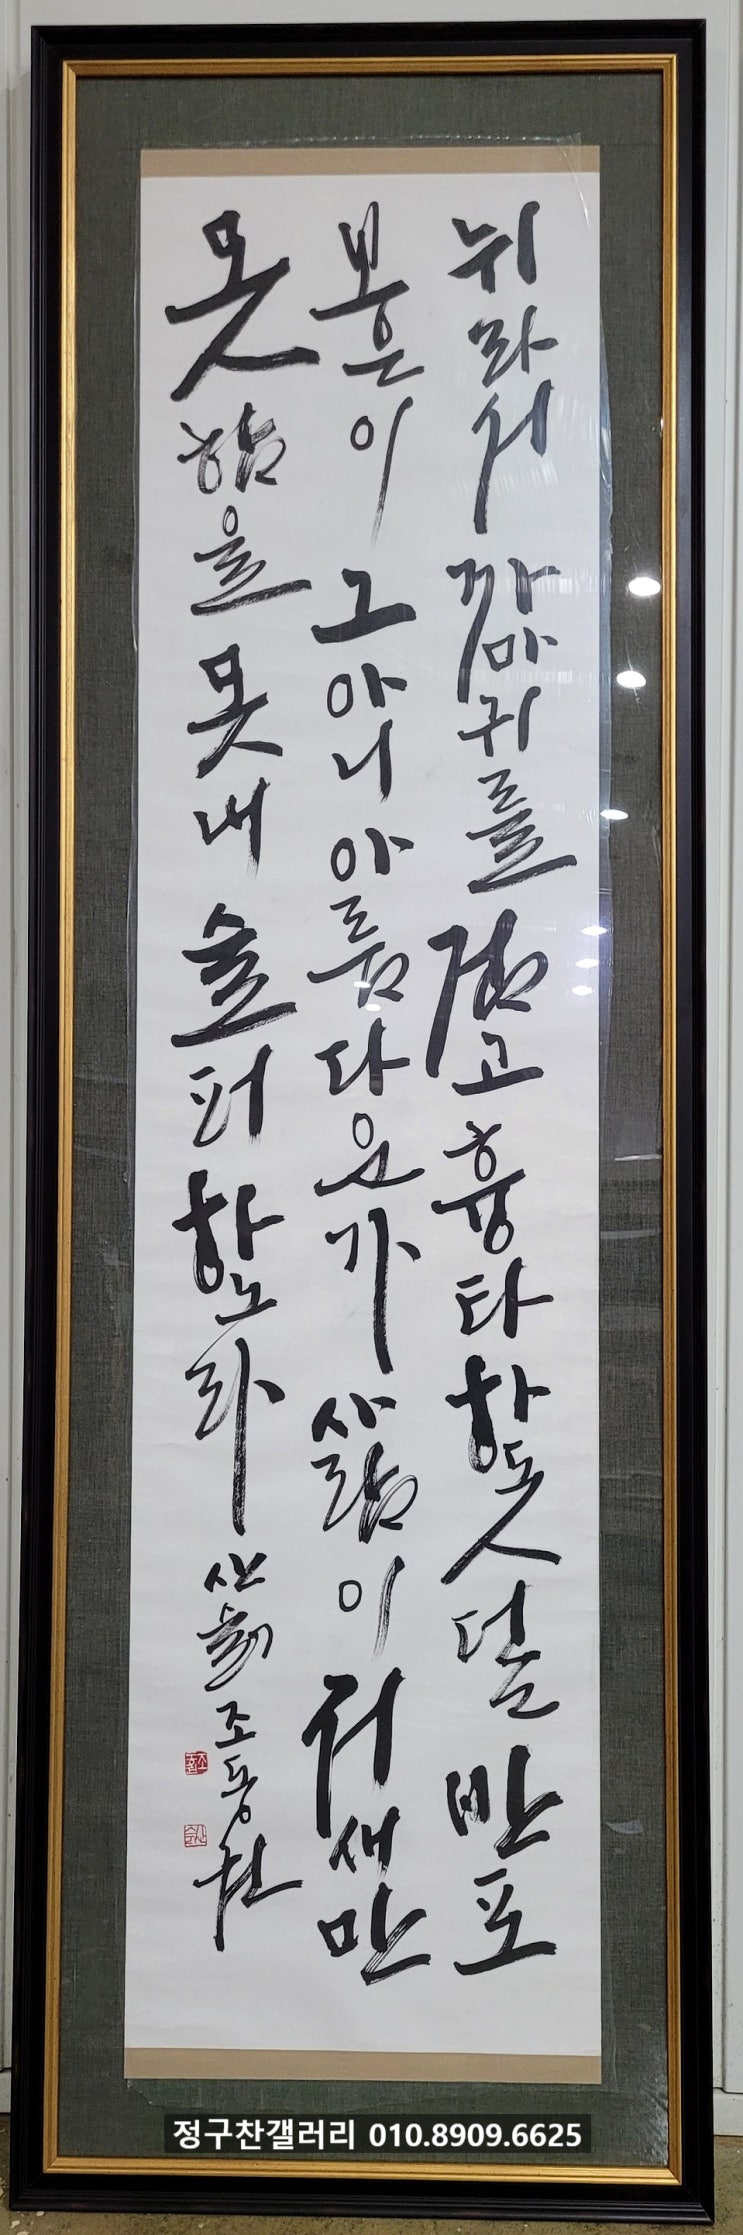 뉘라서 까마귀를 검고 흉타 하돗던 반포
보은이 그 아니 아름다운가 사람이 저 새만
못함을 못내 슬퍼하노라
정구찬갤러리 010.8909.6625